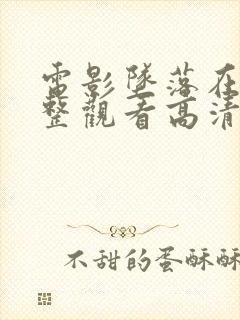 電影墜落在
整觀看高清
不甜的蛋酥酥